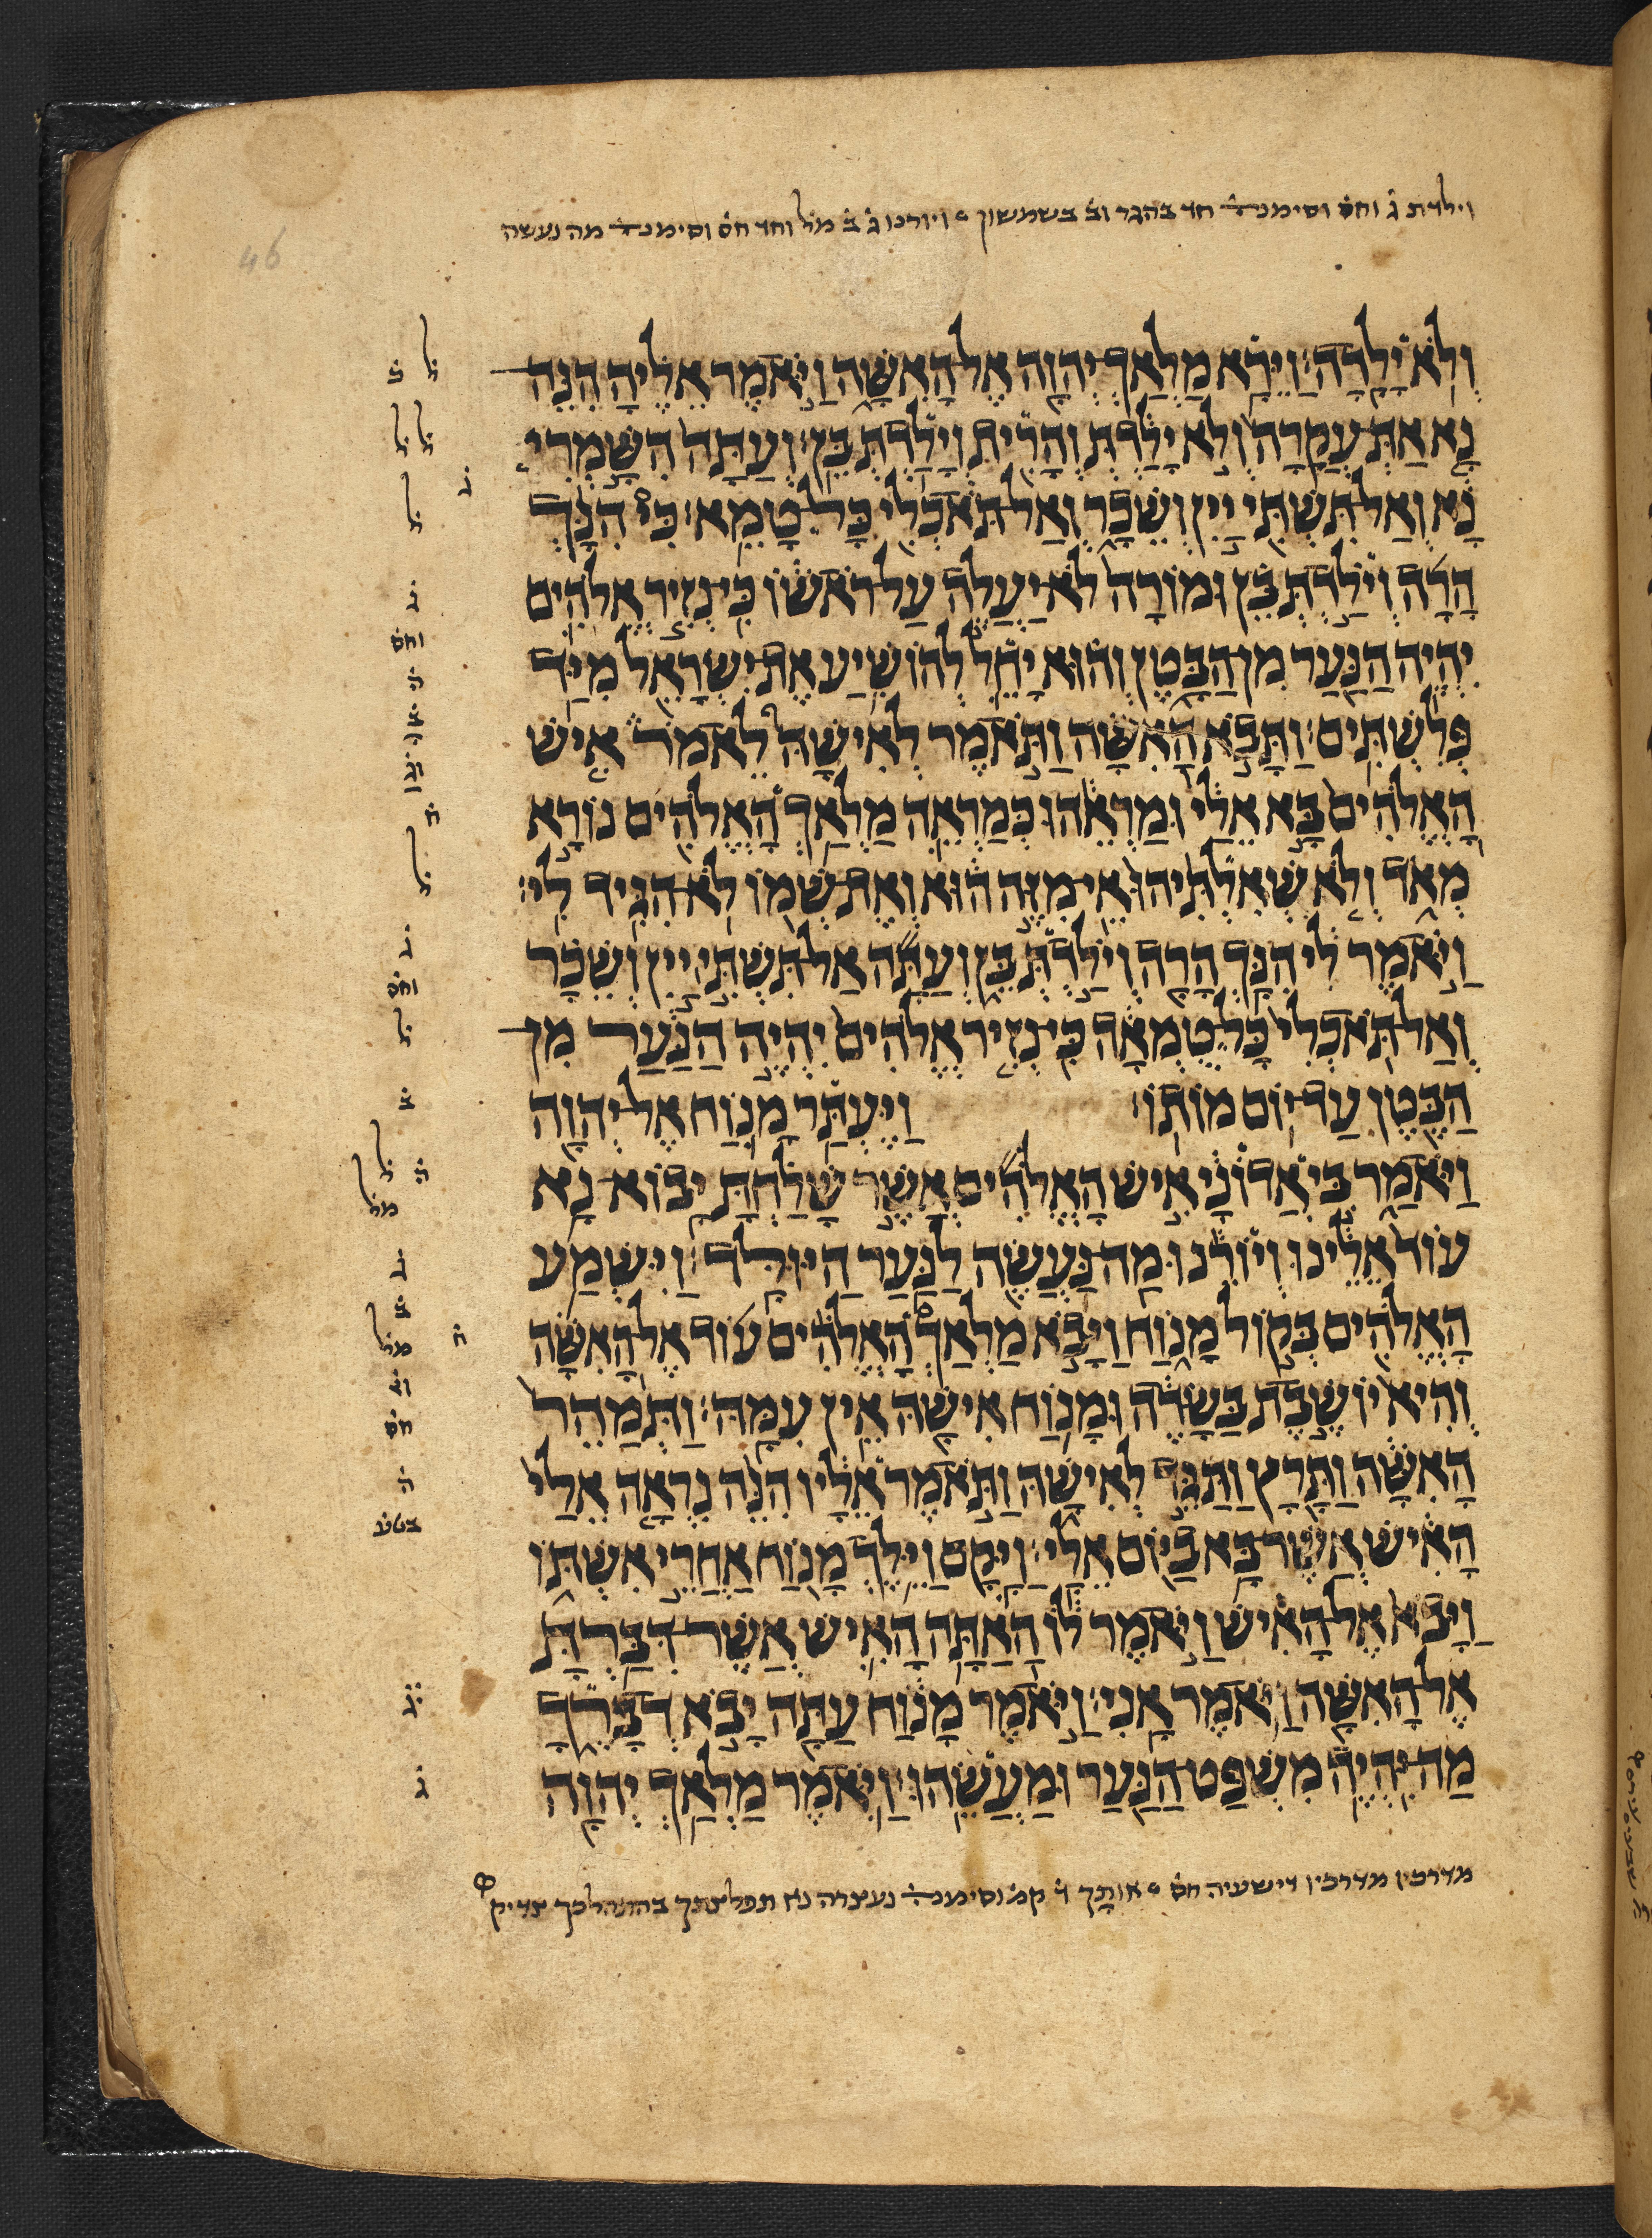 וילדת ג וחס וסימנה חד בהגר וב בשמשון ויורנו ג ב מל וחד חס וסימנה מה נעשה
וְלֹא יָלָדָה׃ וַיֵּרָא מַלְאַךְ יְהוָה אֶל הָאִשָּׁה וַיֹּאמֶר אֵלֶיהָ הִנֵּה
נָא אַתְּ עֲקָרָה וְלֹא יָלַדְתְּ וְהָרִית וְיָלַדְתְּ בֵּן׃ וְעַתָּה הִשָּׁמְרִי
נָא וְאַל תִּשְׁתִּי יַיִן וְשֵׁכָר וְאַל תֹּאכְלִי כָּל טָמֵא׃ כִּי הִנָּךְ
הָרָה וְיֹלַדְתְּ בֵּן וּמוֹרָה לֹא יַעֲלֶה עַל רֹאשׁוֹ כִּי נְזִיר אֱלֹהִים
יִהְיֶה הַנַּעַר מִן הַבָּטֶן וְהוּא יָחֵל לְהוֹשִׁיעַ אֶת יִשְׂרָאֵל מִיַּד
פְּלִשְׁתִּים׃ וַתָּבֹא הָאִשָּׁה וַתֹּאמֶר לְאִישָׁהּ לֵאמֹר אִישׁ
הָאֱלֹהִים בָּא אֵלַי וּמַרְאֵהוּ כְּמַרְאֵה מַלְאַךְ הָאֱלֹהִים נוֹרָא
מְאֹד וְלֹא שְׁאִלְתִּיהוּ אֵי מִזֶּה הוּא וְאֶת שְׁמוֹ לֹא הִגִּיד לִי׃
וַיֹּאמֶר לִי הִנָּךְ הָרָה וְיֹלַדְתְּ בֵּן וְעַתָּה אַל תִּשְׁתִּי יַיִן וְשֵׁכָר
וְאַל תֹּאכְלִי כָּל טֻמְאָה כִּי נְזִיר אֱלֹהִים יִהְיֶה הַנַּעַר מִן
הַבֶּטֶן עַד יוֹם מוֹתוֹ׃ וַיֶּעְתַּר מָנוֹחַ אֶל יְהוָה
וַיֹּאמַר בִּי אֲדוֹנָי אִישׁ הָאֱלֹהִים אֲשֶׁר שָׁלַחְתָּ יָבוֹא נָא
עוֹד אֵלֵינוּ וְיוֹרֵנוּ מַה נַּעֲשֶׂה לַנַּעַר הַיּוּלָּד׃ וַיִּשְׁמַע
הָאֱלֹהִים בְּקוֹל מָנוֹחַ וַיָּבֹא מַלְאַךְ הָאֱלֹהִים עוֹד אֶל הָאִשָּׁה
וְהִיא יוֹשֶׁבֶת בַּשָּׂדֶה וּמָנוֹחַ אִישָׁהּ אֵין עִמָּהּ׃ וַתְּמַהֵר
הָאִשָּׁה וַתָּרָץ וַתַּגֵּד לְאִישָׁהּ וַתֹּאמֶר אֵלָיו הִנֵּה נִרְאָה אֵלַי
הָאִישׁ אֲשֶׁר בָּא בַיּוֹם אֵלָי׃ וַיָּקָם וַיֵּלֶךְ מָנוֹחַ אַחֲרֵי אִשְׁתּוֹ
וַיָּבֹא אֶל הָאִישׁ וַיֹּאמֶר לוֹ הַאַתָּה הָאִישׁ אֲשֶׁר דִּבַּרְתָּ
אֶל הָאִשָּׁה וַיֹּאמֶר אָנִי׃ וַיֹּאמֶר מָנוֹחַ עַתָּה יָבֹא דְבָרֶךָ
מַה יִּהְיֶה מִשְׁפַּט הַנַּעַר וּמַעֲשֵׂהוּ׃ וַיֹּאמֶר מַלְאַךְ יְהוָה
מדרכין מדרכין דישעיה חס אותך ד קמ וסימנה נעצרה נא תפלצתך בהתהלכך צדיק
46